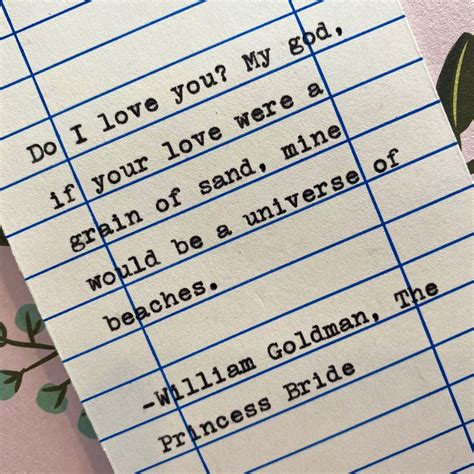 Do I love you? My god,
if your love were a
grain of sand, mine
would be a universe of
beaches.
-William Goldman, The
Princess Bride